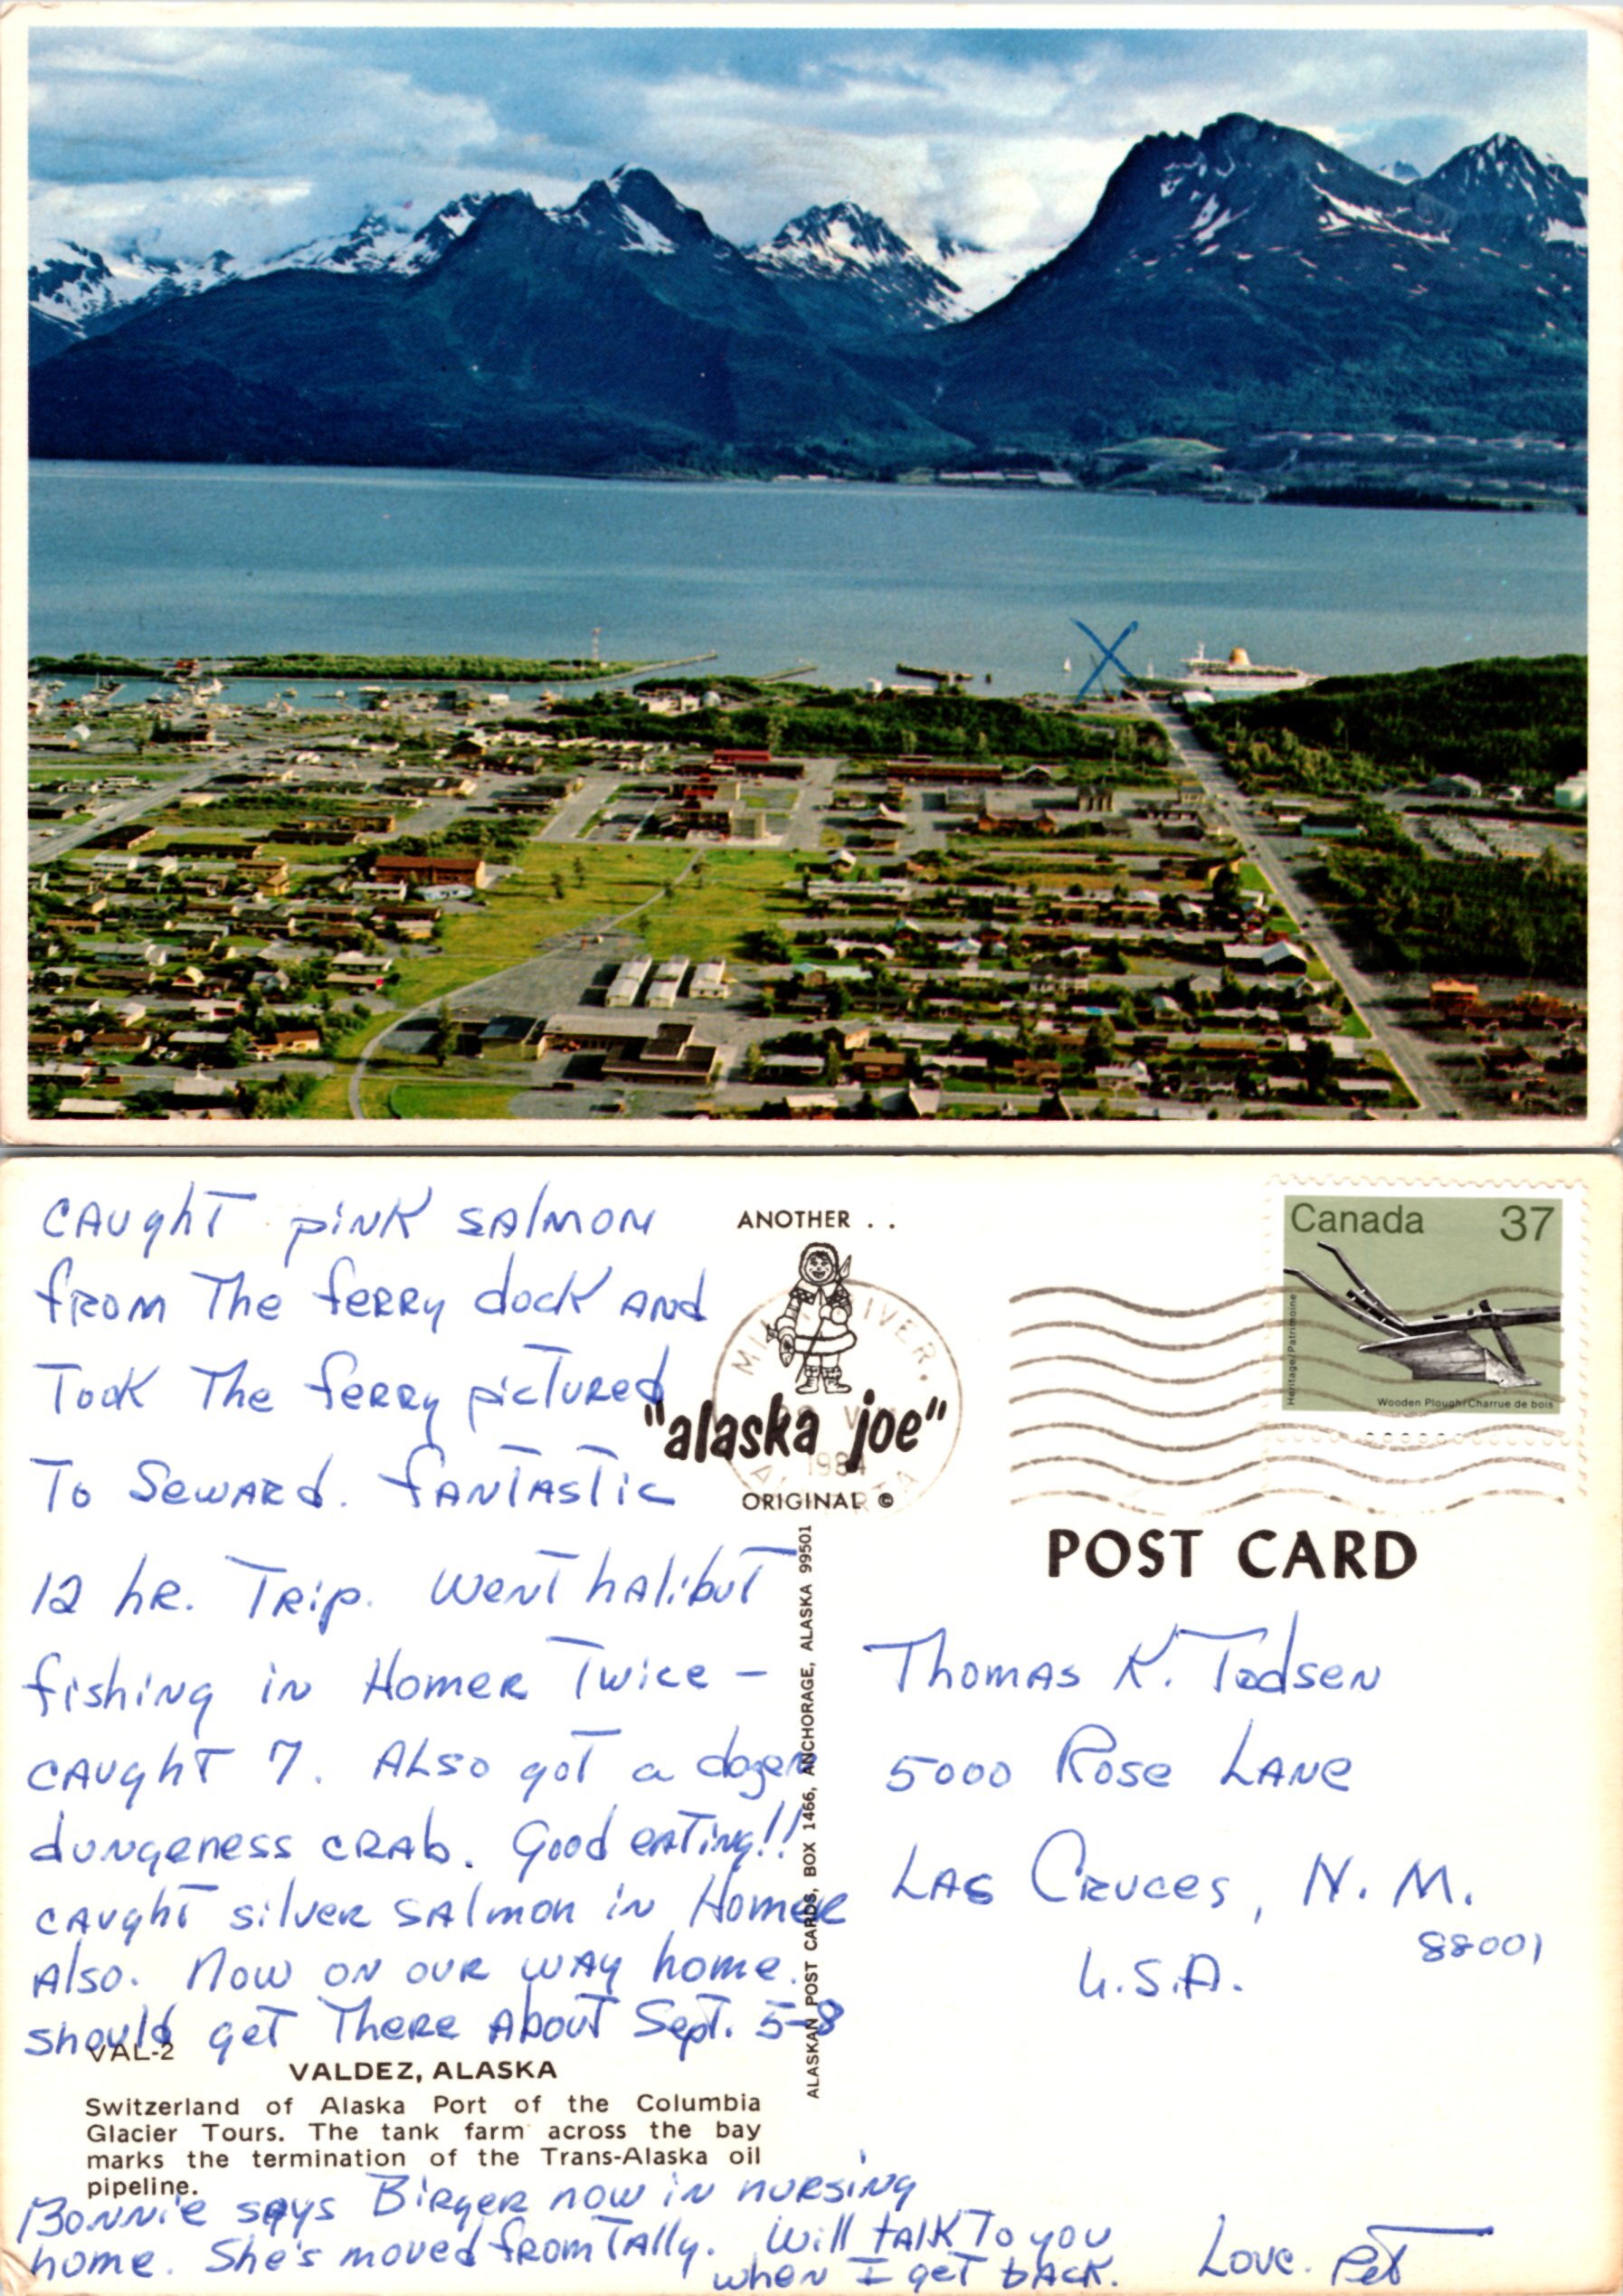 X
Caught pink salmon
from the ferry dock and
took the ferry pictured
to Seward. Fantastic
12 hr. trip. Went halibut
fishing in Homer twice –
caught 7. Also got a dozen
dungeness crab. Good eating!!
caught silver salmon in Homer
also. Now on our way home.
should get there about Sept. 5-8
VAL-2
VALDEZ, ALASKA
Switzerland of Alaska Port of the Columbia
Glacier Tours. The tank farm across the bay
marks the termination of the Trans-Alaska oil
pipeline.
Bonnie says Birger now in nursing
home. She's moved from Tally. Will talk to you
when I get back.
Love. Pet
ANOTHER . .
"alaska joe"
ORIGINAL ©
ALASKAN POST CARDS, BOX 1466, ANCHORAGE, ALASKA 99501
MILK RIVER.
1984
ALBERTA
Canada 37
Heritage/Patrimoine
Wooden Plough/Charrue de bois
POST CARD
Thomas K. Todsen
5000 Rose Lane
Las Cruces, N. M.
88001
U.S.A.